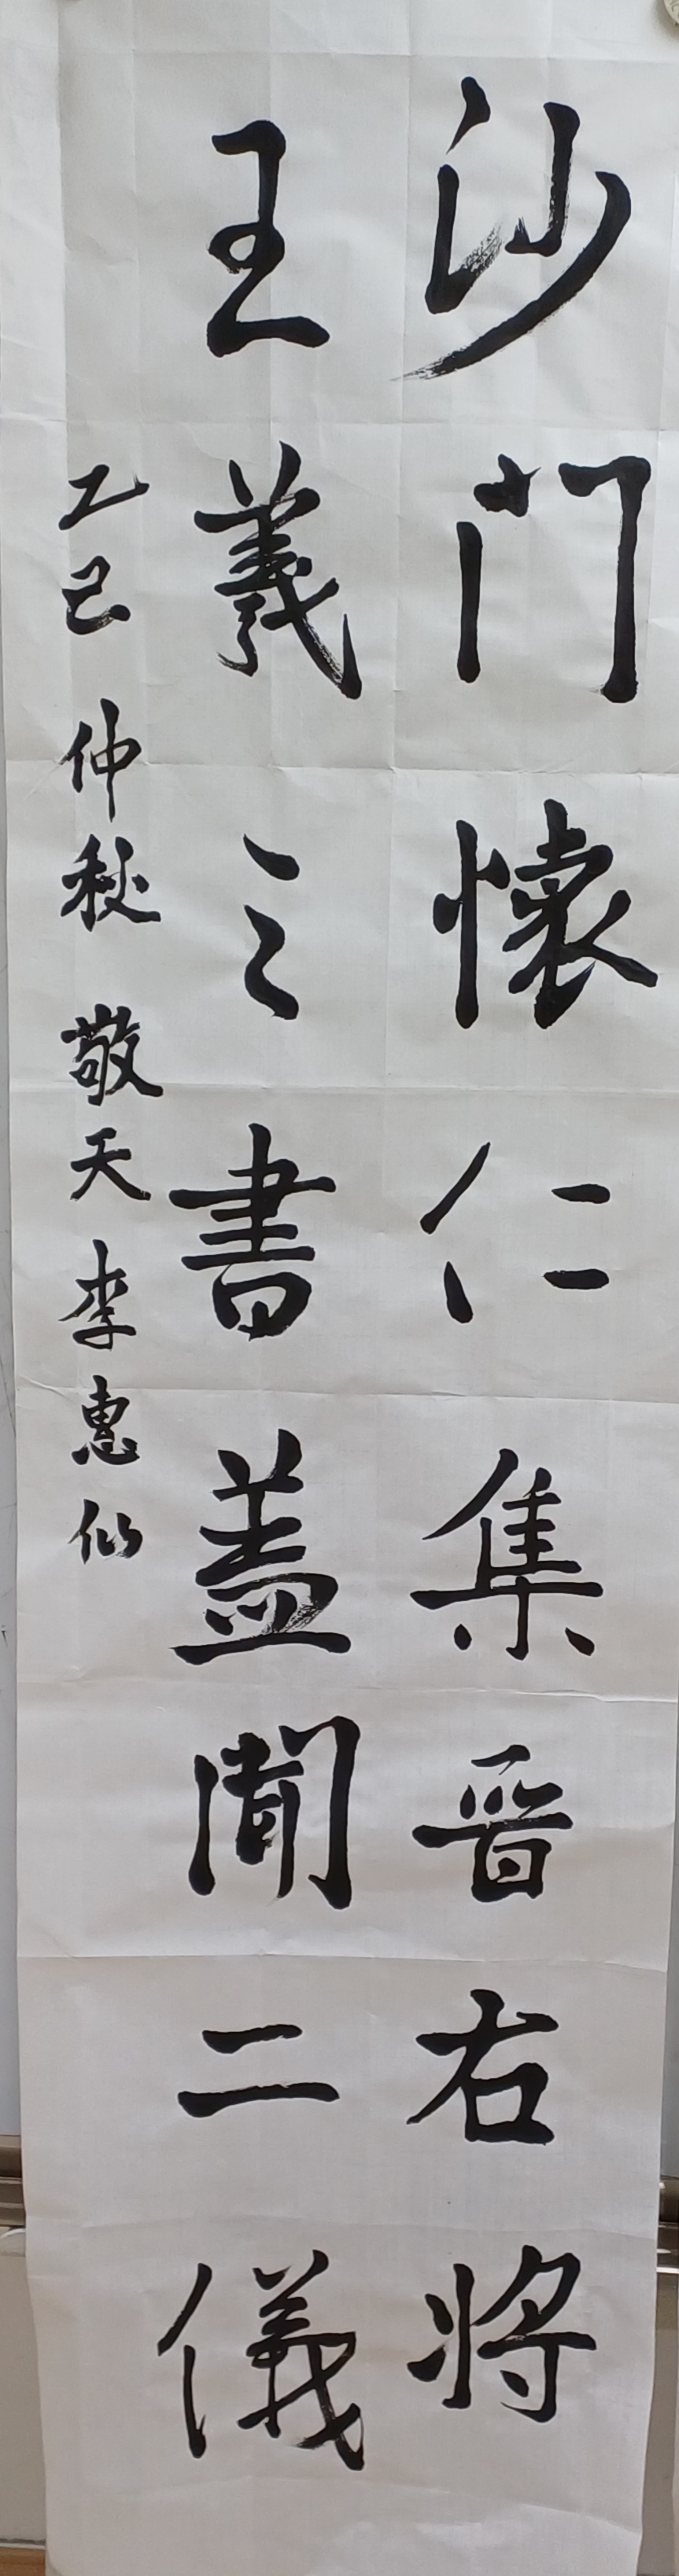 沙门懷仁集晋右将
王羲之書盖聞二儀
乙巳 仲秋 敬天 李惠仙